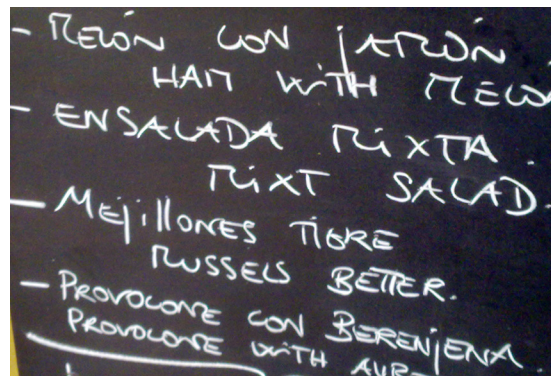 - MELÓN CON JAMÓN
HAM WITH MELO
- ENSALADA MIXTA
MIXT SALAD.
- MEJILLONES TIGRE
MUSSELS BETTER.
- PROVOLONE CON BERENJENA
PROVOLONE WITH